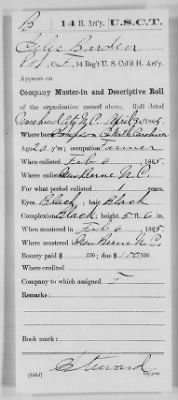 B 14 H. Art'y. U.S.C.T.
Barden
Pvt., Co. , 14 Reg't U. S. Col'd H. Art'y.
Appears on
Company Muster-in and Descriptive Roll
of the organization named above. Roll dated
Morehead City N.C. 1865.
Where born North Carolina
Age 20 y'rs; occupation Farmer
When enlisted Feb 6, 1865
Where enlisted New Berne N.C.
For what period enlisted 1 years.
Eyes Black; hair Black
Complexion Black; height 5 ft. 6 in.
When mustered in Feb 6, 1865
Where mustered in New Berne N.C.
Bounty paid $ ; due $ 100
Where credited
Company to which assigned F
Remarks:
Book mark:
Steward
Copyist.